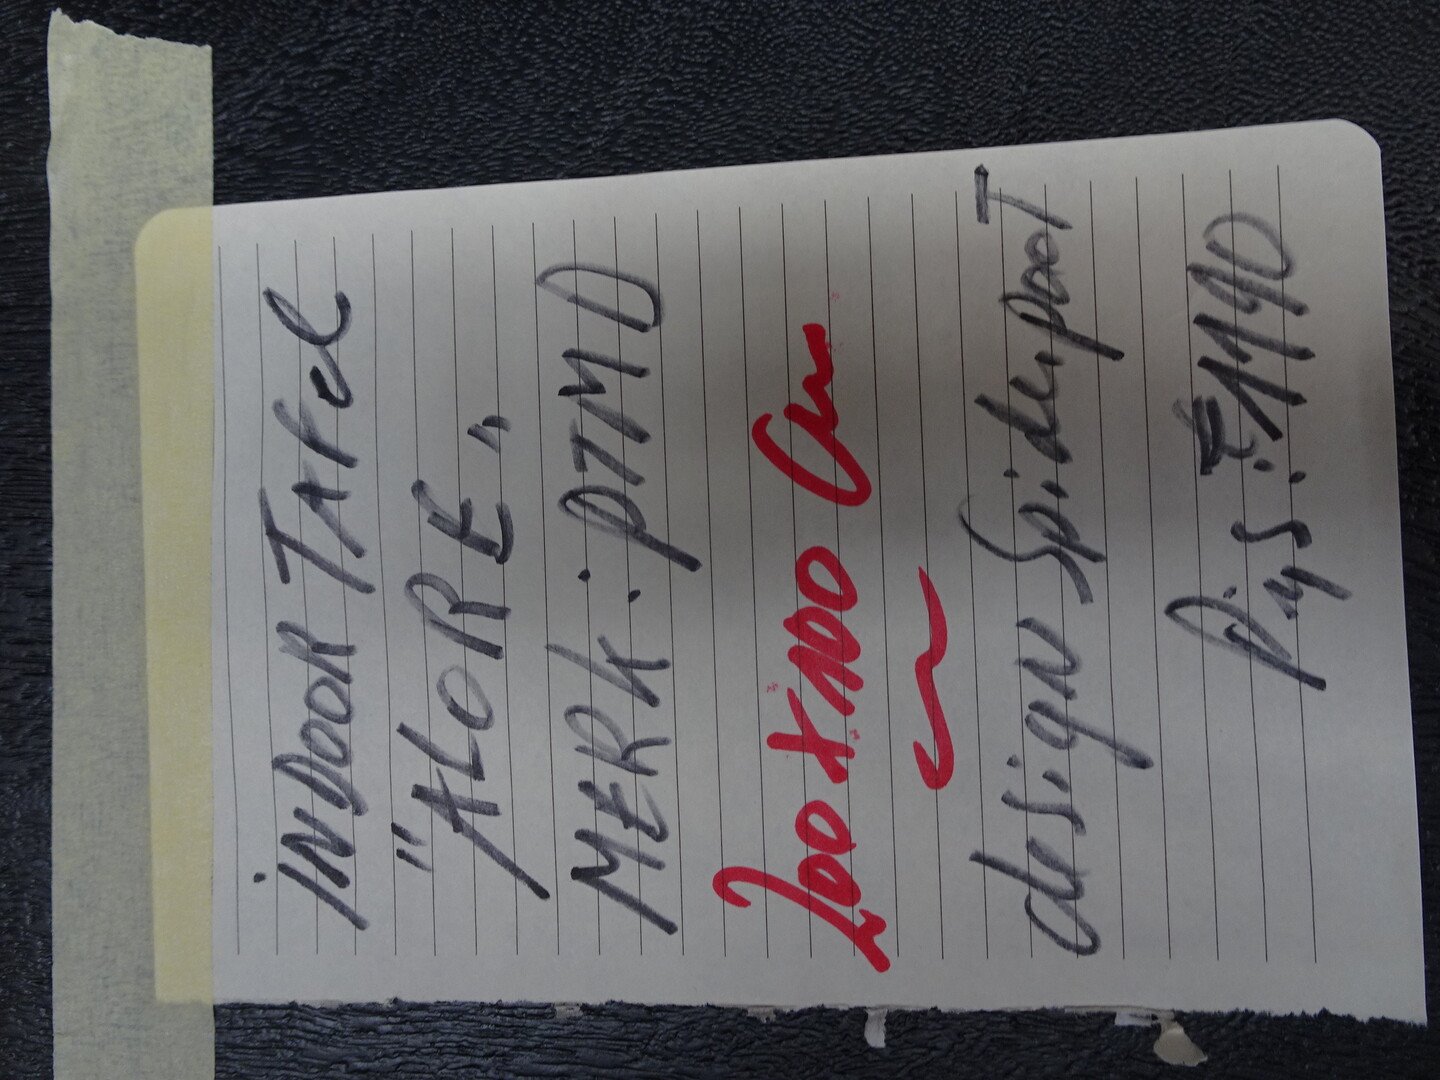 INDOOR TAFEL
"ALORE"
MERK : PTMD
200 x 100 Cm
design Spiderpoot
Pijs : € 1190